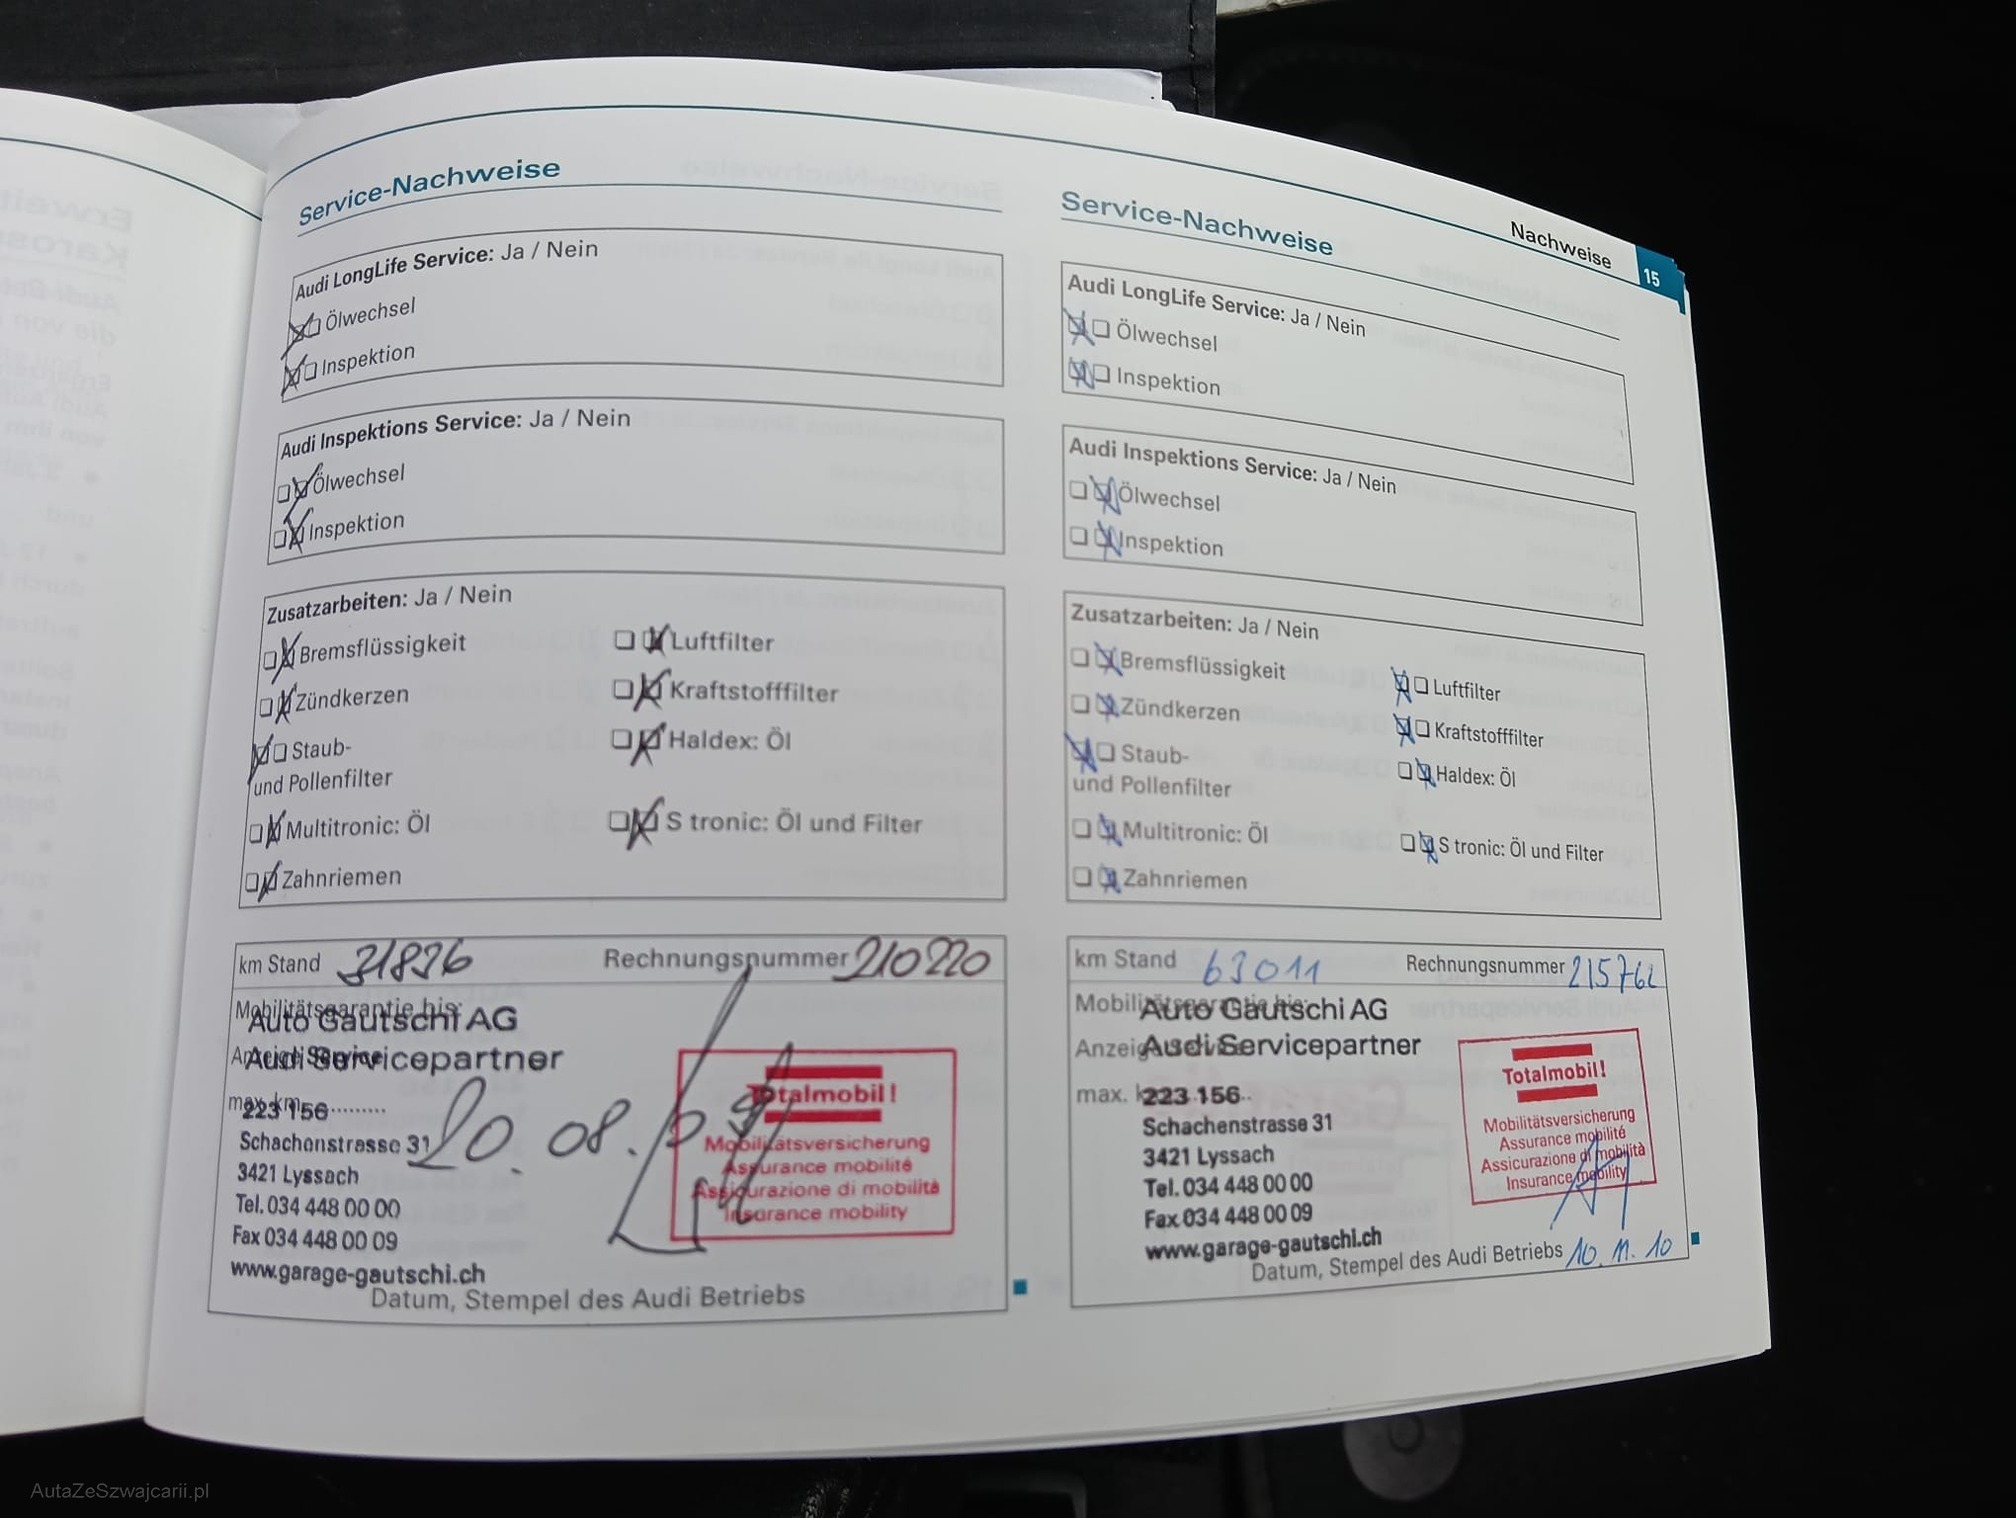 Nachweise
15
Service-Nachweise
Audi LongLife Service: Ja / Nein
Ölwechsel
Inspektion
Audi Inspektions Service: Ja / Nein
Ölwechsel
Inspektion
Zusatzarbeiten: Ja / Nein
Bremsflüssigkeit
Luftfilter
Zündkerzen
Kraftstofffilter
Staub-
und Pollenfilter
Haldex: Öl
Multitronic: Öl
S tronic: Öl und Filter
Zahnriemen
km Stand 31836
Rechnungsnummer 210220
Mobilitätsgarantie bis:
Auto Gautschi AG
Audi Servicepartner
max. km
223 156
Schachenstrasse 31
3421 Lyssach
Tel. 034 448 00 00
Fax 034 448 00 09
www.garage-gautschi.ch
20.08.09
Totalmobil!
Mobilitätsversicherung
Assurance mobilité
Assicurazione di mobilità
Insurance mobility
Datum, Stempel des Audi Betriebs
Service-Nachweise
Audi LongLife Service: Ja / Nein
Ölwechsel
Inspektion
Audi Inspektions Service: Ja / Nein
Ölwechsel
Inspektion
Zusatzarbeiten: Ja / Nein
Bremsflüssigkeit
Luftfilter
Zündkerzen
Kraftstofffilter
Staub-
und Pollenfilter
Haldex: Öl
Multitronic: Öl
S tronic: Öl und Filter
Zahnriemen
km Stand 63011
Rechnungsnummer 215762
Mobilitätsgarantie bis:
Auto Gautschi AG
Audi Servicepartner
max.
223 156
Schachenstrasse 31
3421 Lyssach
Tel. 034 448 00 00
Fax 034 448 00 09
www.garage-gautschi.ch
Totalmobil!
Mobilitätsversicherung
Assurance mobilité
Assicurazione di mobilità
Insurance mobility
Datum, Stempel des Audi Betriebs 10.11.10
AutaZeSzwajcarii.pl